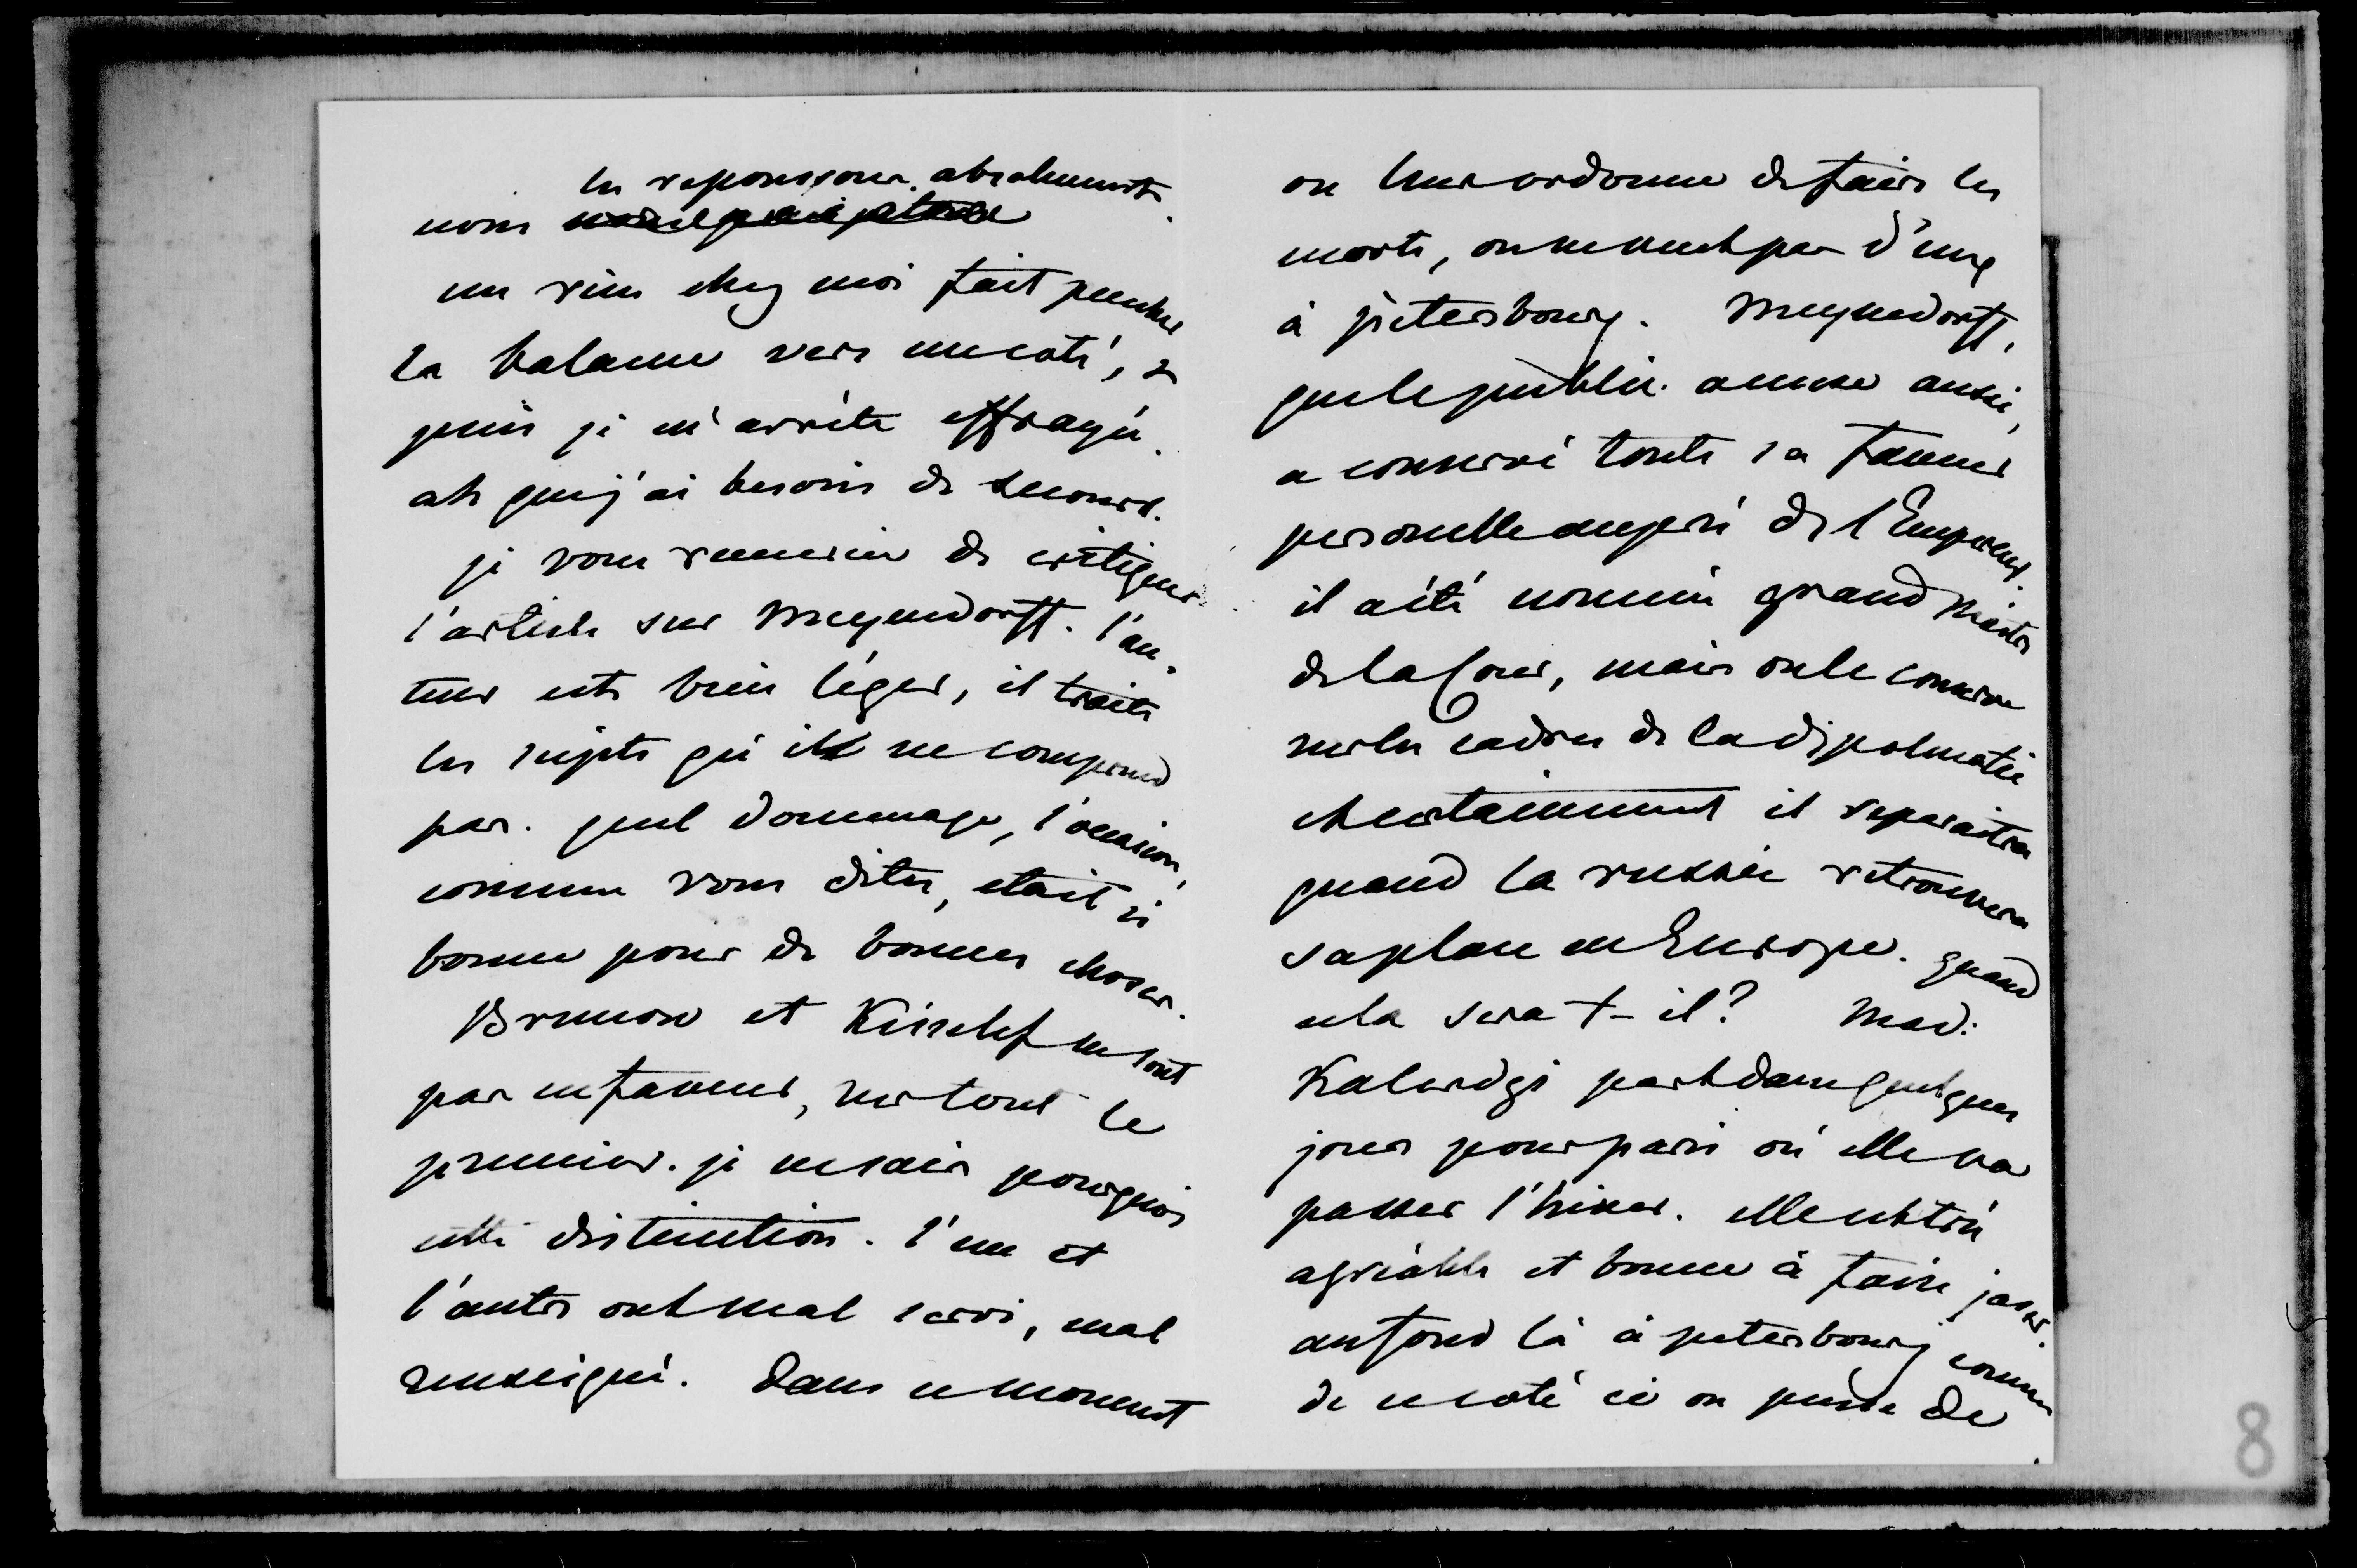 les repoussons absolument.
nous
un rien chez moi fait pencher
la balance vers un coté, &
puis je m'arrête effrayée.
ah que j'ai besoin de secours.
je vous remercie de critiquer
l'article sur Meyendorff. l'au-
teur est bien léger, il traite
les sujets qu'il ne comprend
pas. quel dommage, l'occasion,
comme vous dites, etait si
bonne pour de bonnes choses.
Brunow et Kisselef ne sont
pas en faveur, surtout le
premier. je ne sais pourquoi
cette distinction. l'un et
l'autre ont mal servi, mal
renseigné. Dans ce moment
on leur ordonne de faire les
morts, on ne veut pas d'eux
à petersbourg. Meyendorff,
que le public accuse aussi,
a conservé toute sa faveur
personelle auprès de l'Empereur.
il a été nommé grand Maitre
de la Cour, mais on le conserve
sur les cadres de la diplomatie
et certainement il reparaitra
quand la russie retrouvera
sa place en Europe. quand
cela sera t-il? Mad:
Kalerdgi part dans quelques
jours pour paris où elle va
passer l'hiver. elle est très
agréable et bonne à faire jaser.
au fond là à petersbourg comme
de ce coté ci on pense de
8